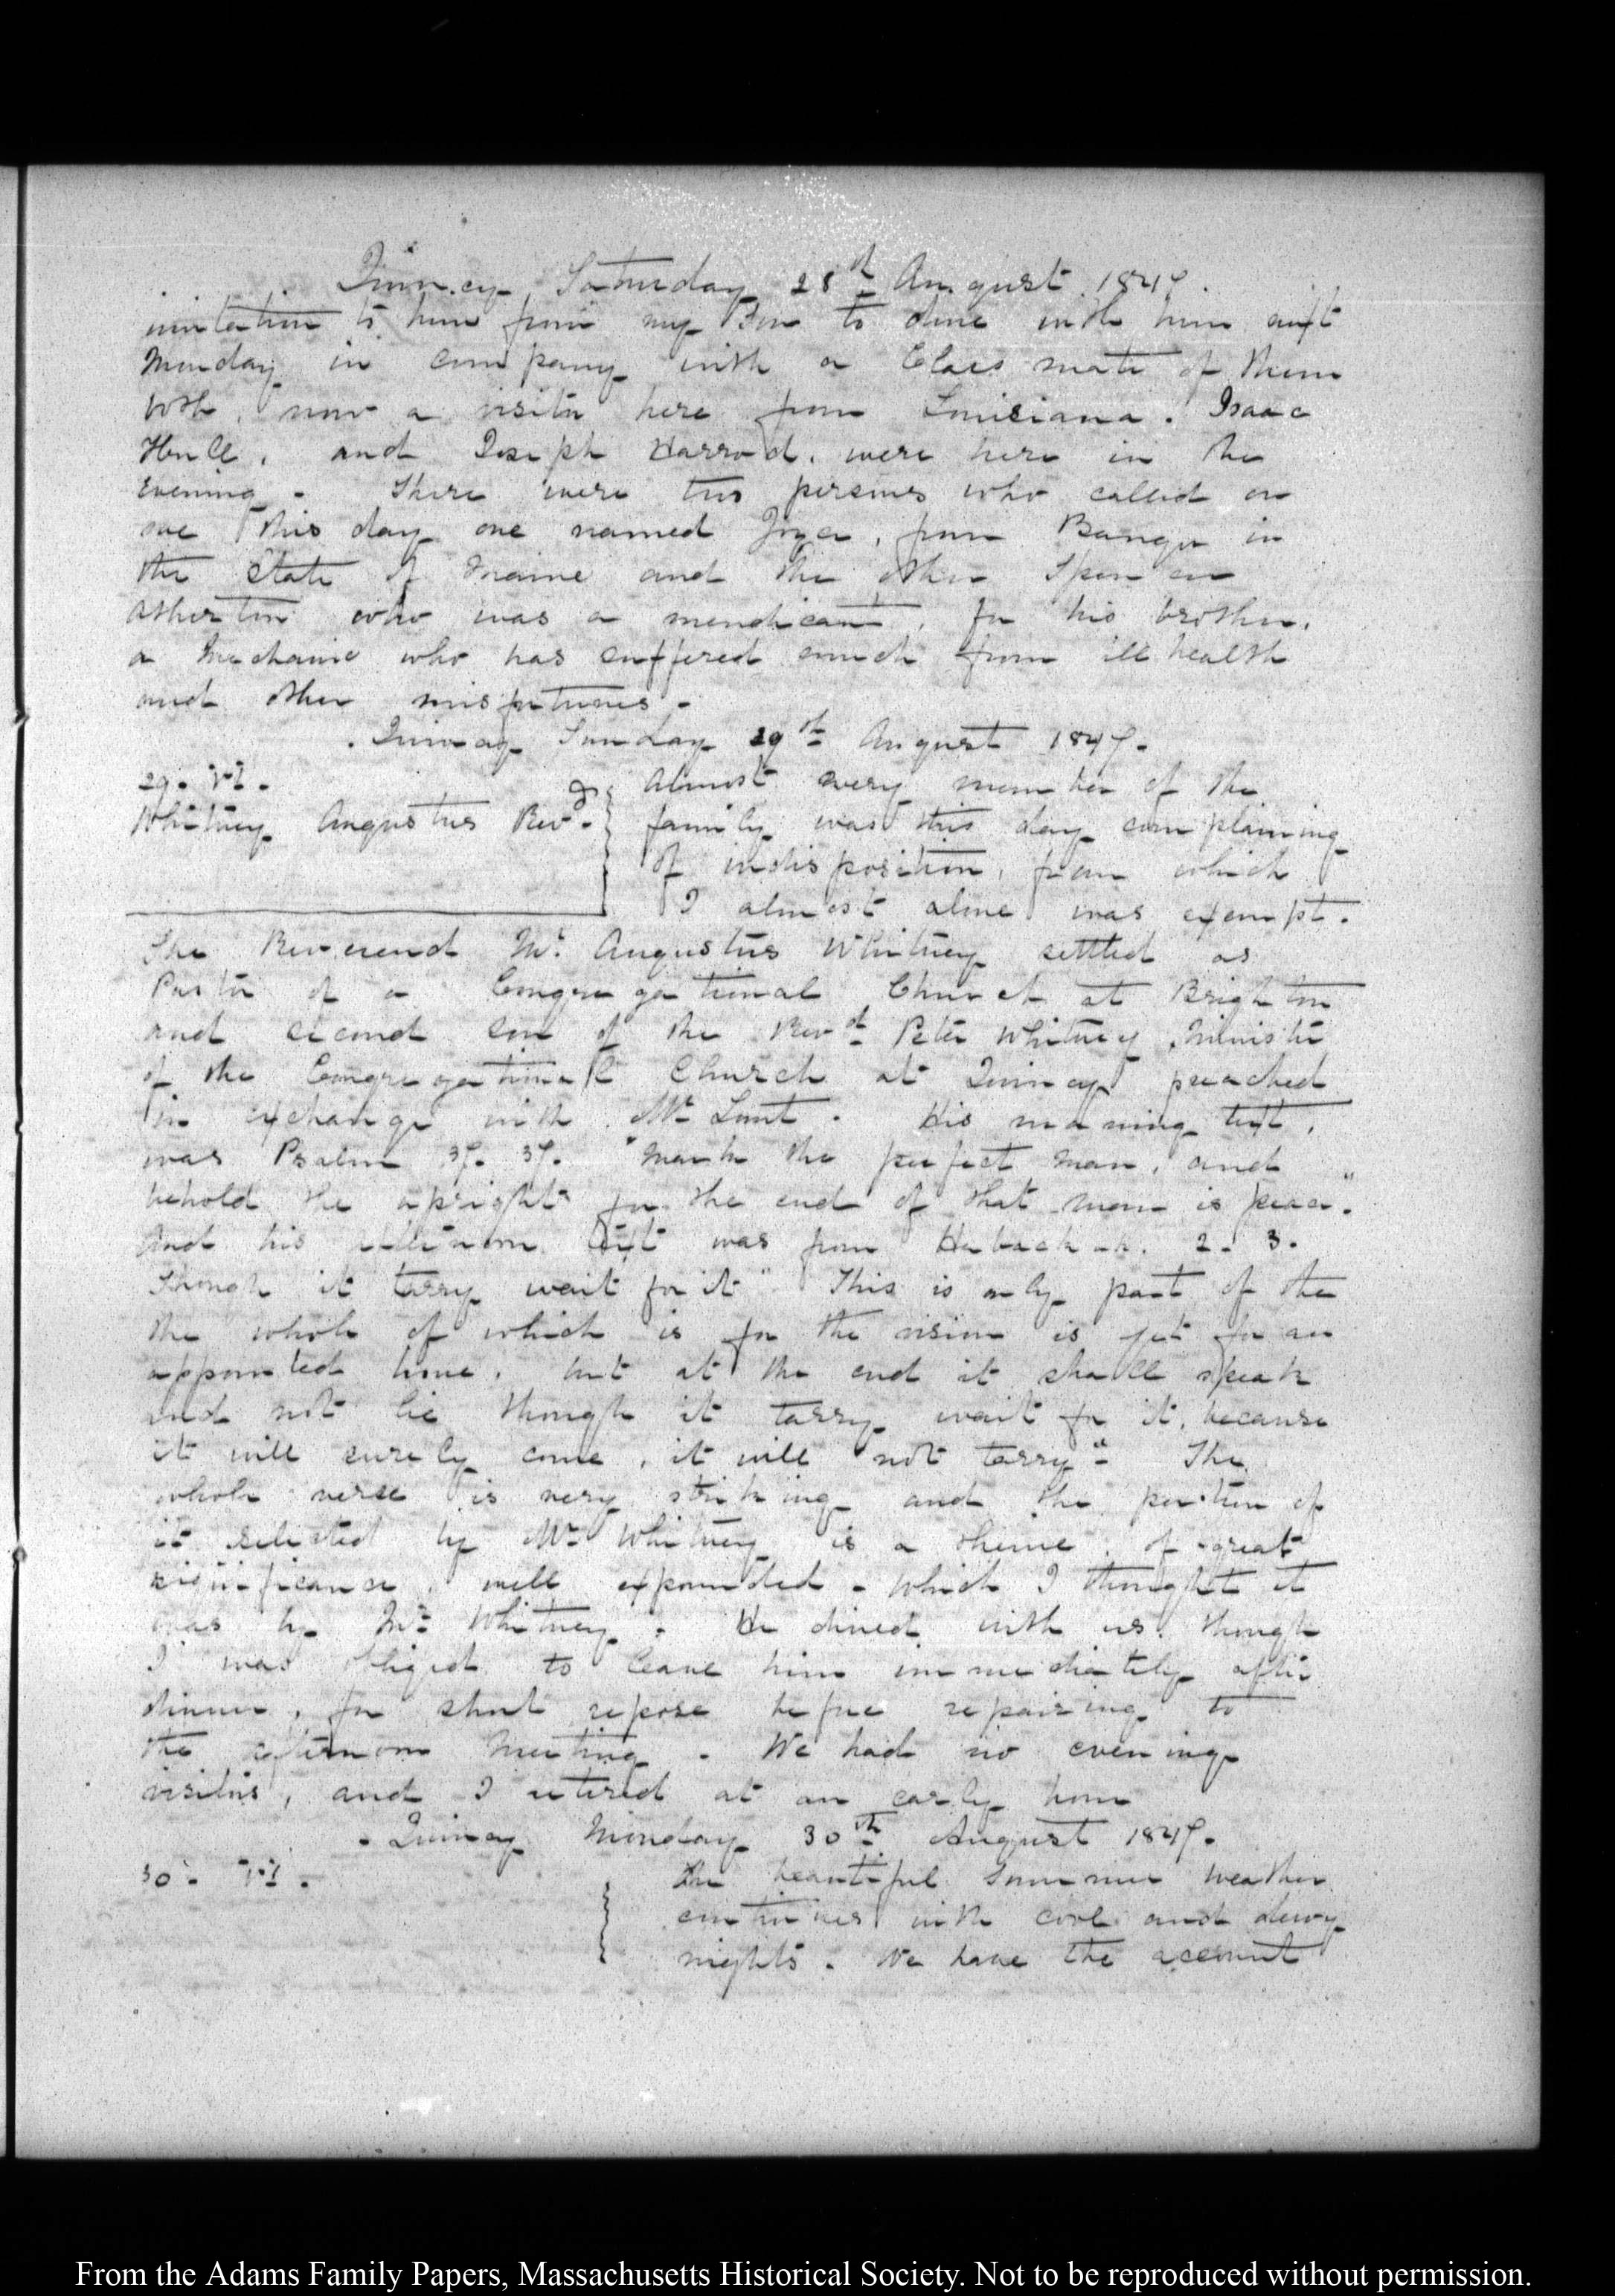 Quincy Saturday 28th August 1847.
invitation to him from my Son to dine with him next
Monday in company with a Class mate of them
both, now a visitor here from Louisiana. Isaac
Hull, and Joseph Harrod, were here in the
evening - There were two persons who called on
me this day one named from Bangor in
the State of Maine and the other Spencer
Atherton who was a mendicant, for his brother,
a Mechanic who has suffered much from ill health
and other misfortunes -
Quincy Sunday 29th August 1847.
29. VI.
Whitney Augustus Revd.
Almost every member of the
family was this day complaining
of indisposition, from which
I almost alone was exempt.
The Reverend Mr. Augustus Whitney settled as
Pastor of a Congregational Church at Brighton
and second son of the Revd Peter Whitney Minister
of the Congregational Church at Quincy preached
in exchange with Mr Lunt. His morning text,
was Psalm 37. 37. "Mark the perfect man, and
behold the upright for the end of that man is peace."
And his afternoon text was from Habackuk. 2. 3.
Though it tarry wait for it" This is only part of the
the whole of which is for the vision is yet for an
appointed time, but at the end it shall speak
and not lie though it tarry wait for it, because
it will surely come, it will not tarry" - The
whole verse is very striking and the portion of
it selected by Mr Whitney is a theme of great
significance, well expounded - which I thought it
was by Mr Whitney. He dined with us though
I was obliged to leave him immediately after
dinner, for short repose before repairing to
the afternoon Meeting - We had no evening
visitors, and I retired at an early hour
- Quincy Monday 30th August 1847.
30. VI.
The beautiful Summer weather
continues with cool and dewy
nights. We have the account
From the Adams Family Papers, Massachusetts Historical Society. Not to be reproduced without permission.